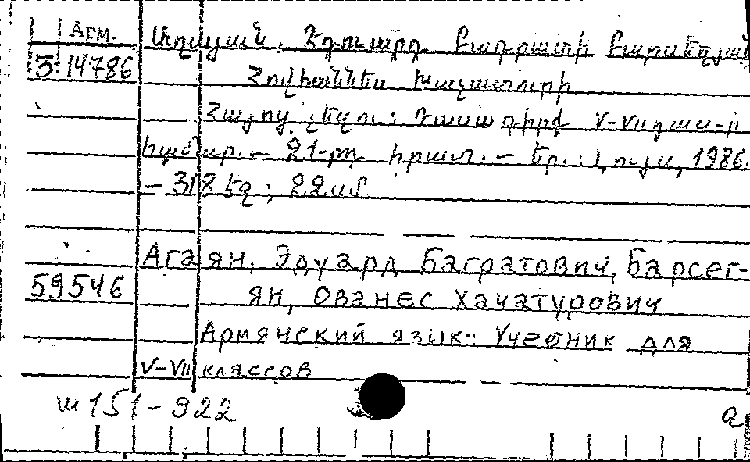 Арм.
Աղայան, Էդուարդ Բագրատի Բարսեղյան
3-14786 Հովհաննես Խաչատուրի
Հայոց լեզու: Դասագիրք V-VII դաս-ի
համար. – 21-րդ հրատ. – Եր.: Լույս, 1986.
– 318 էջ; 22 սմ
Агаян, Эдуард Багратович, Барсег-
59546 ян, Ованес Хачатурович
Армянский язык: Учебник для
V-VII классов
151-922
а